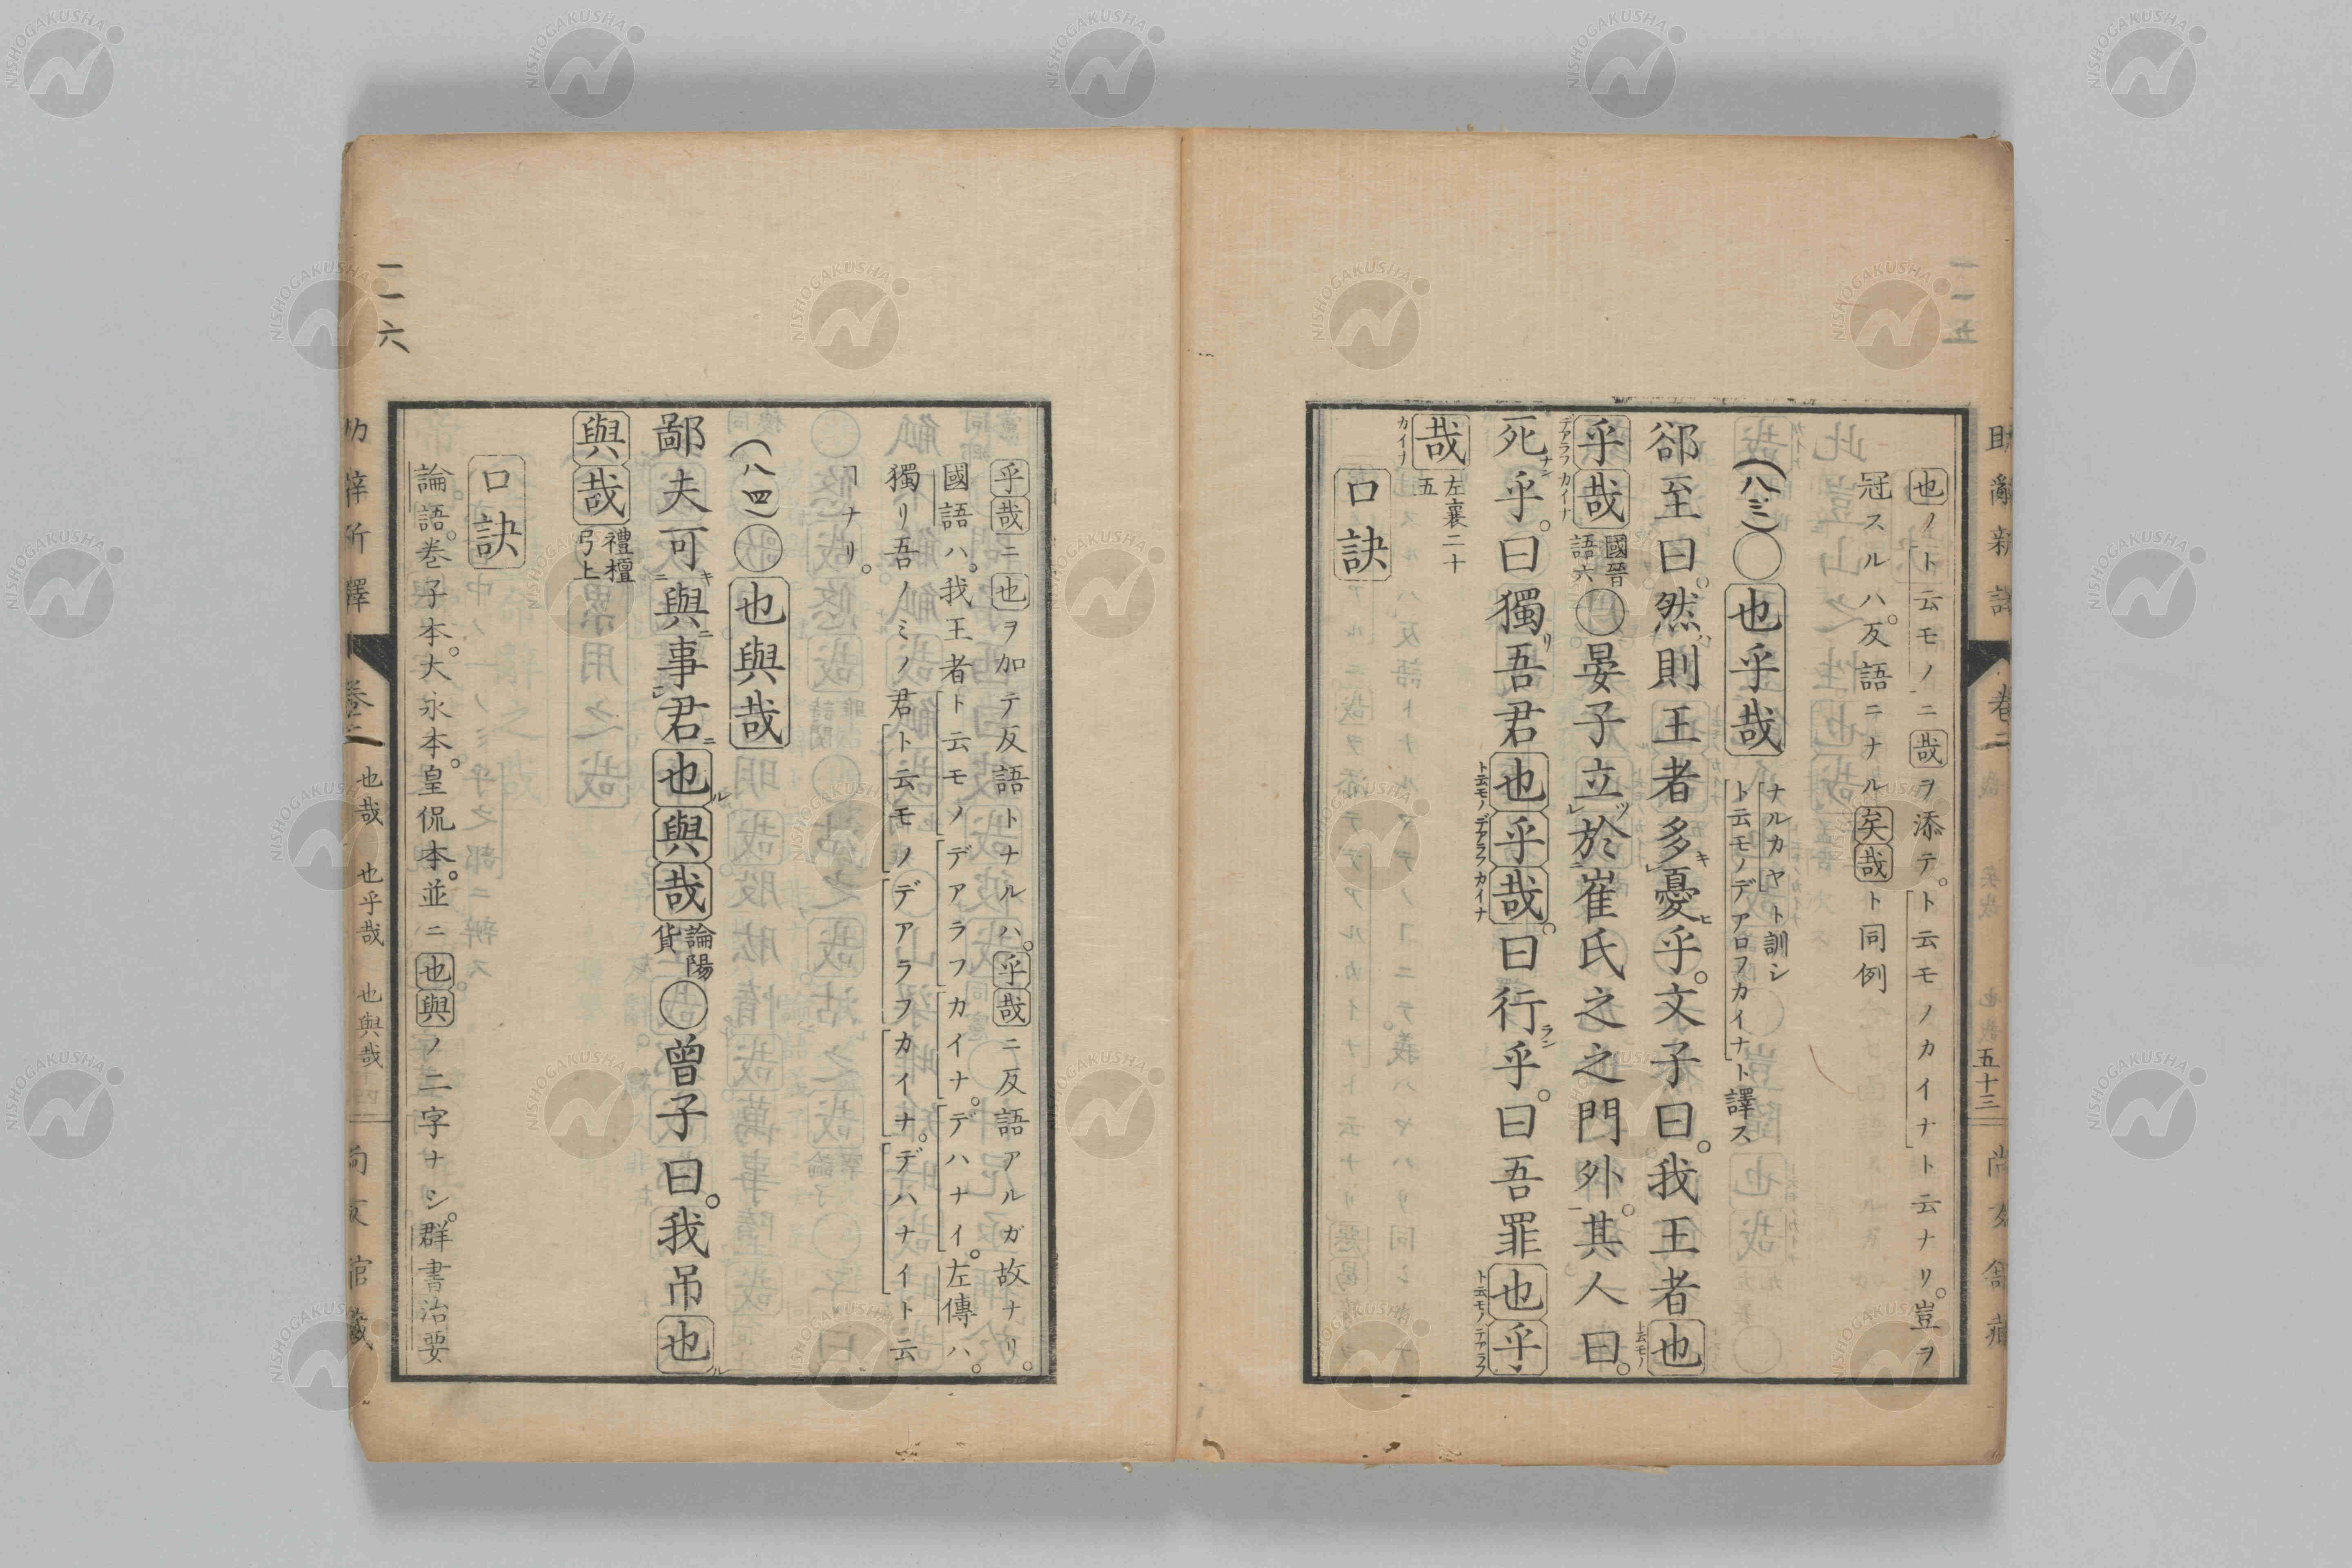 也ノト云モノニ哉ヲ添テ。ト云モノカイナト云ナリ。豈ヲ
冠スルハ。反語ニナル矣哉ト同例
(八三)〇也乎哉 ナルカヤト訓シ
ト云モノデアロフカイナト譯ス
郤至曰。然則王者多憂乎。文子曰。我王者也
乎哉 國晉
語六 〇晏子立於崔氏之之門外。其人曰。
死乎。曰獨吾君也乎哉。曰行乎。曰吾罪也乎
哉 左襄二十
五
口訣
乎哉ニ也ヲ加テ反語トナルハ。乎哉ニ反語アルガ故ナリ。
國語ハ。我王者ト云モノデアラフカイナ。デハナイ。左傳ハ。
獨リ吾ノミノ君ト云モノデアラフカイナ。デハナイト云
ヿナリ。
(八四)〇也與哉
鄙夫可與事君也與哉 論陽
貨 〇曾子曰。我吊也
與哉 禮檀
弓上
口訣
論語。巻子本。大永本。皇侃本。並ニ也與ノ二字ナシ。群書治要
一一六
卷二
也哉 也乎哉 也與哉
五十三
NISHOGAKUSHA